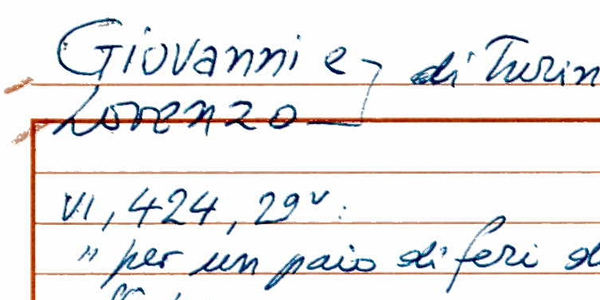 Giovanni e di Turin
Lorenzo
VI, 424, 29v:
" per un paio di feri d